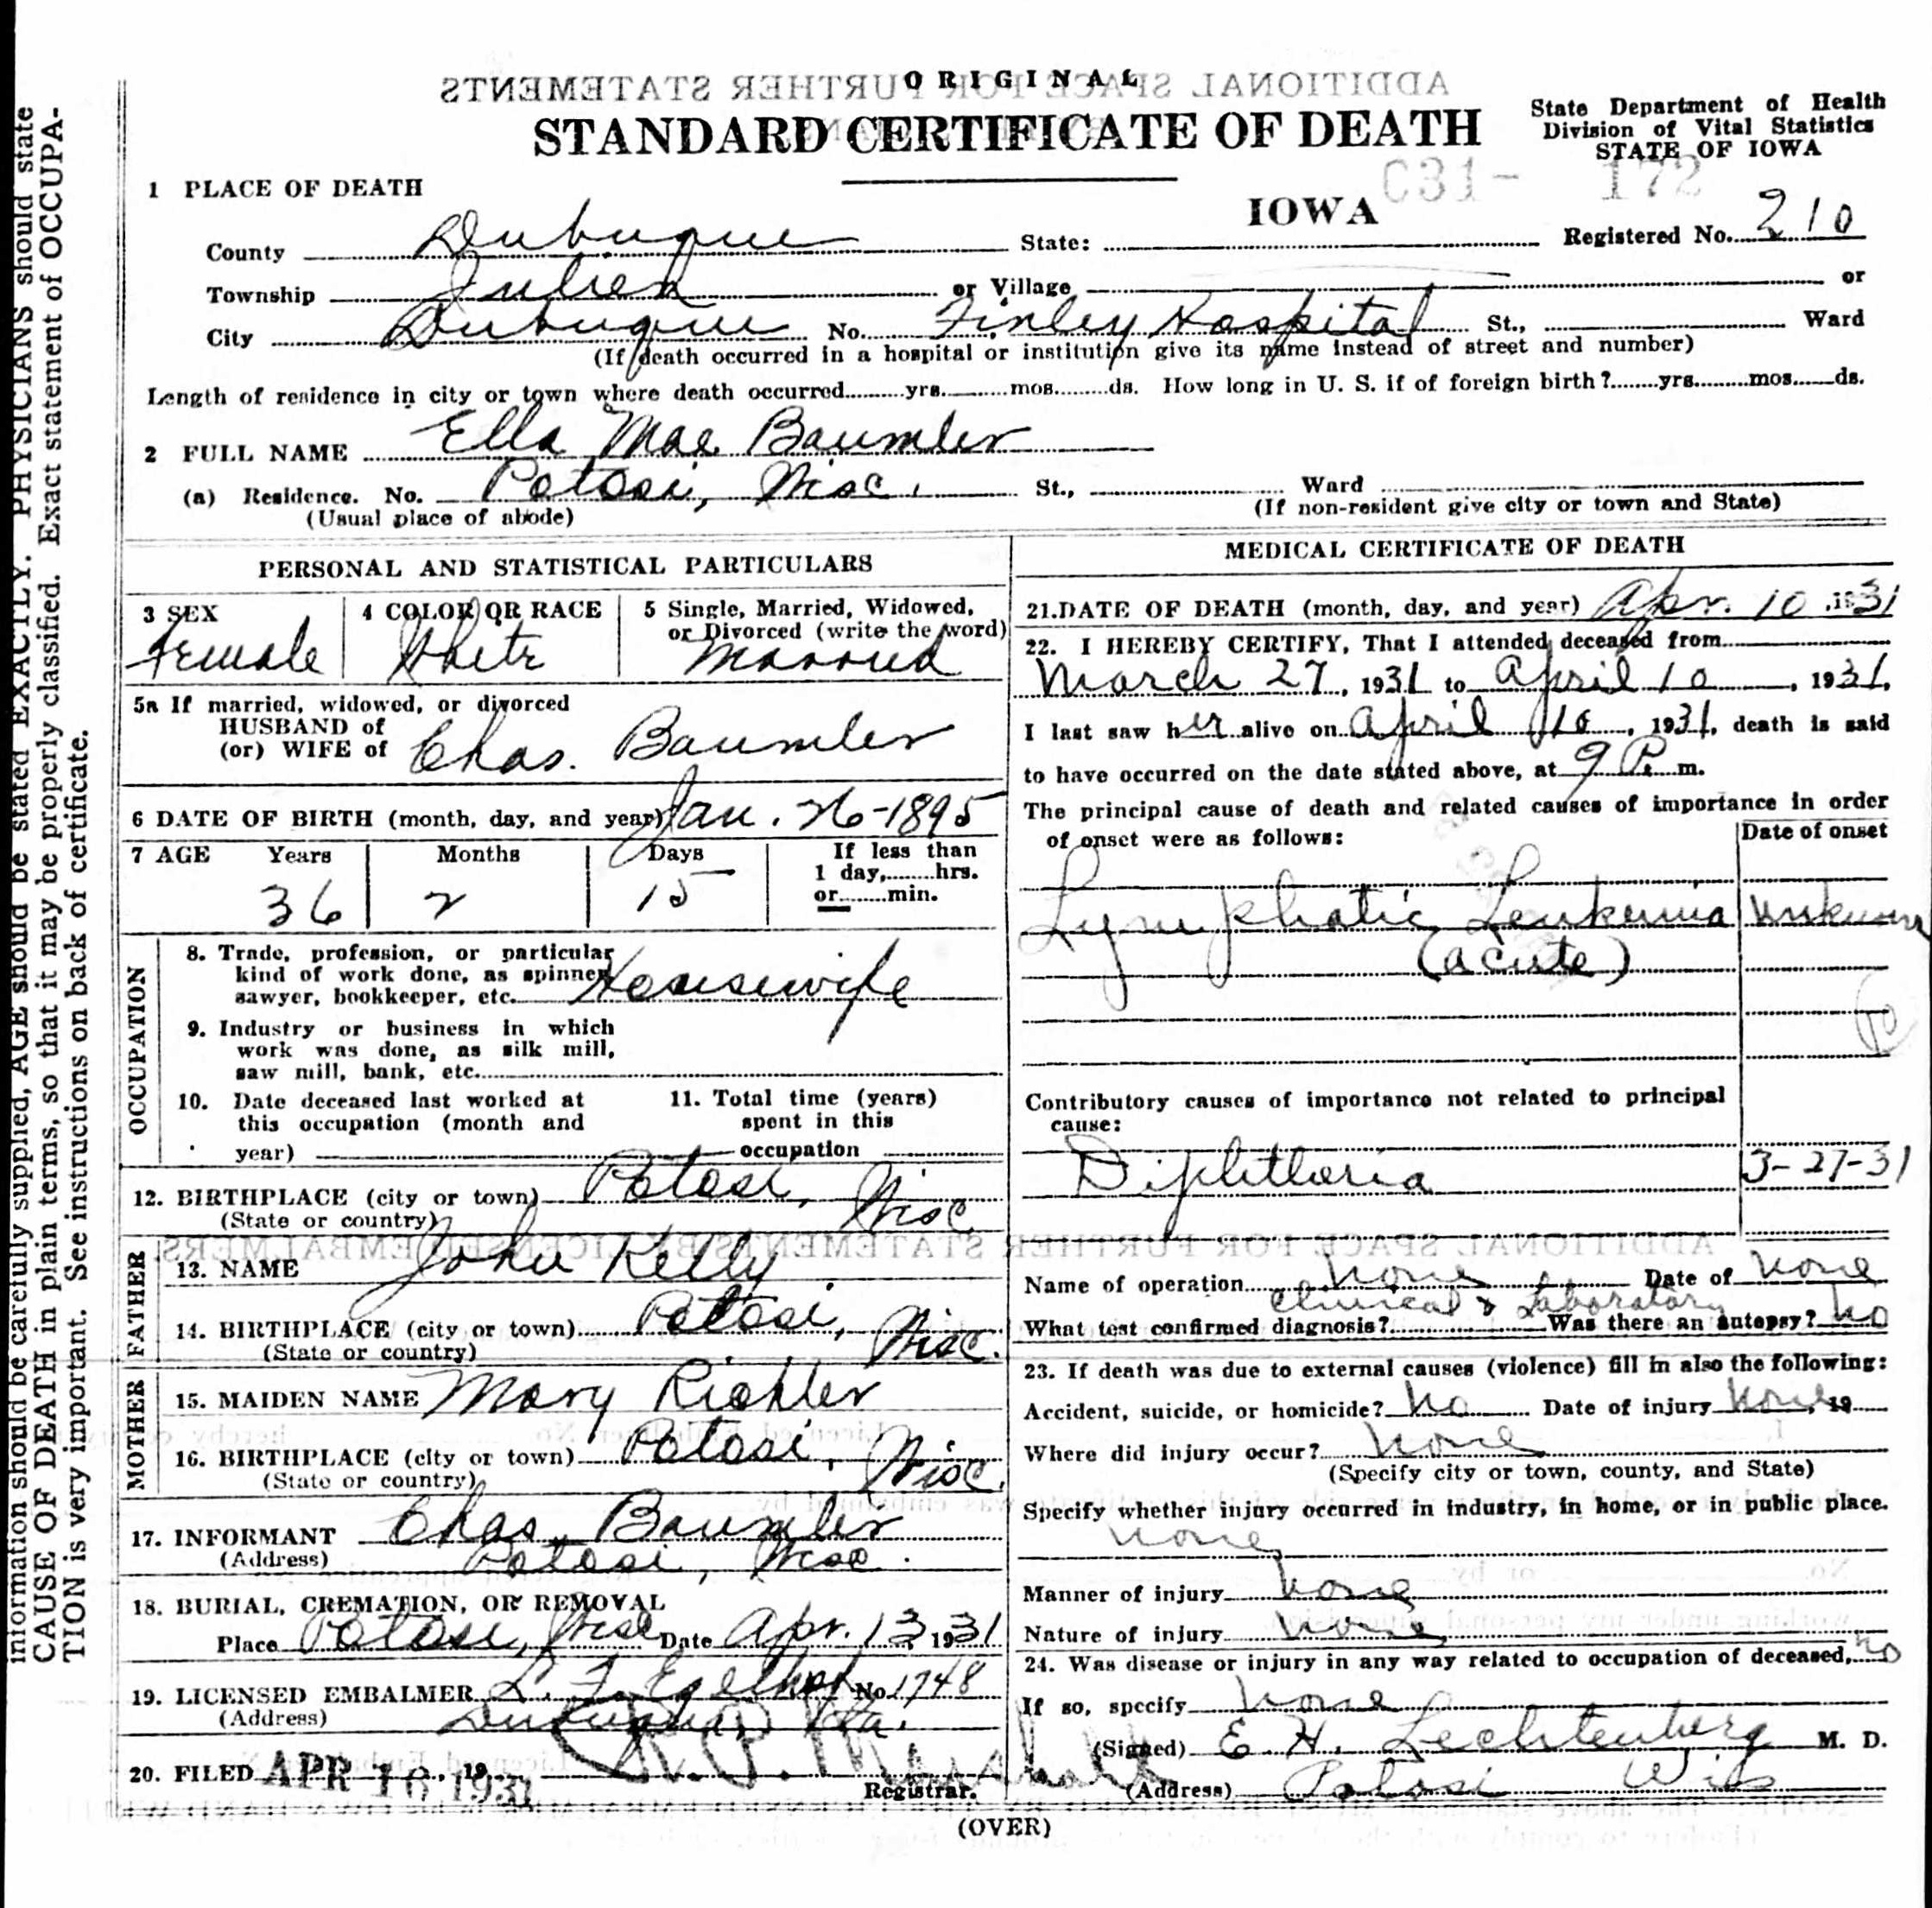 ORIGINAL
ADDITIONAL SPACE FOR FURTHER STATEMENTS
STANDARD CERTIFICATE OF DEATH
State Department of Health
Division of Vital Statistics
STATE OF IOWA
C31- 172
1 PLACE OF DEATH
IOWA
County Dubuque State: Registered No. 210
Township Julien or Village or
City Dubuque No. Finley Hospital St., Ward
(If death occurred in a hospital or institution give its name instead of street and number)
Length of residence in city or town where death occurred yrs. mos. ds. How long in U. S. if of foreign birth? yrs. mos. ds.
2 FULL NAME Ella Mae Baumler
(a) Residence. No. Potosi, Wisc. St., Ward
(Usual place of abode) (If non-resident give city or town and State)
PERSONAL AND STATISTICAL PARTICULARS
3 SEX Female
4 COLOR OR RACE White
5 Single, Married, Widowed,
or Divorced (write the word)
Married
5a If married, widowed, or divorced
HUSBAND of
(or) WIFE of Chas. Baumler
6 DATE OF BIRTH (month, day, and year) Jan. 26-1895
7 AGE Years Months Days If less than
1 day, hrs.
36 2 15 or min.
OCCUPATION
8. Trade, profession, or particular
kind of work done, as spinner,
sawyer, bookkeeper, etc. Housewife
9. Industry or business in which
work was done, as silk mill,
saw mill, bank, etc.
10. Date deceased last worked at
this occupation (month and
year)
11. Total time (years)
spent in this
occupation
12. BIRTHPLACE (city or town) Potosi,
(State or country) Wisc.
FATHER
13. NAME John Kelly
14. BIRTHPLACE (city or town) Potosi,
(State or country) Wisc.
MOTHER
15. MAIDEN NAME Mary Richter
16. BIRTHPLACE (city or town) Potosi,
(State or country) Wisc.
17. INFORMANT Chas. Baumler
(Address) Potosi, Wisc.
18. BURIAL, CREMATION, OR REMOVAL
Place Potosi, Wisc Date Apr. 13 1931
19. LICENSED EMBALMER L. F. Egelhof No. 1748
(Address) Dubuque, Ia.
20. FILED APR 16 1931, 19
Registrar.
MEDICAL CERTIFICATE OF DEATH
21. DATE OF DEATH (month, day, and year) Apr. 10, 1931
22. I HEREBY CERTIFY, That I attended deceased from
March 27, 1931 to April 10, 1931.
I last saw her alive on April 10, 1931, death is said
to have occurred on the date stated above, at 9 P. m.
The principal cause of death and related causes of importance in order
of onset were as follows:
Date of onset
Lymphatic Leukemia Unknown
(acute)
Contributory causes of importance not related to principal
cause:
Diphtheria 3-27-31
ADDITIONAL SPACE FOR FURTHER STATEMENTS BY LICENSED EMBALMERS.
Name of operation none Date of none
What test confirmed diagnosis? Clinical & Laboratory Was there an autopsy? no
23. If death was due to external causes (violence) fill in also the following:
Accident, suicide, or homicide? no Date of injury none, 19
Where did injury occur? none
(Specify city or town, county, and State)
Specify whether injury occurred in industry, in home, or in public place.
none
Manner of injury none
Nature of injury none
24. Was disease or injury in any way related to occupation of deceased, no
If so, specify none
(Signed) E. H. Lechtenberg M. D.
(Address) Potosi Wis
(OVER)
information should be carefully supplied, AGE should be stated EXACTLY. PHYSICIANS should state
CAUSE OF DEATH in plain terms, so that it may be properly classified. Exact statement of OCCUPA-
TION is very important. See instructions on back of certificate.